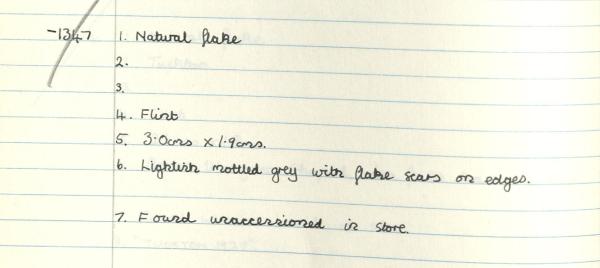 -1347 1. Natural flake
2.
3.
4. Flint
5. 3.0cms x 1.9cms.
6. Lightish mottled grey with flake scars on edges.
7. Found unaccessioned in store.